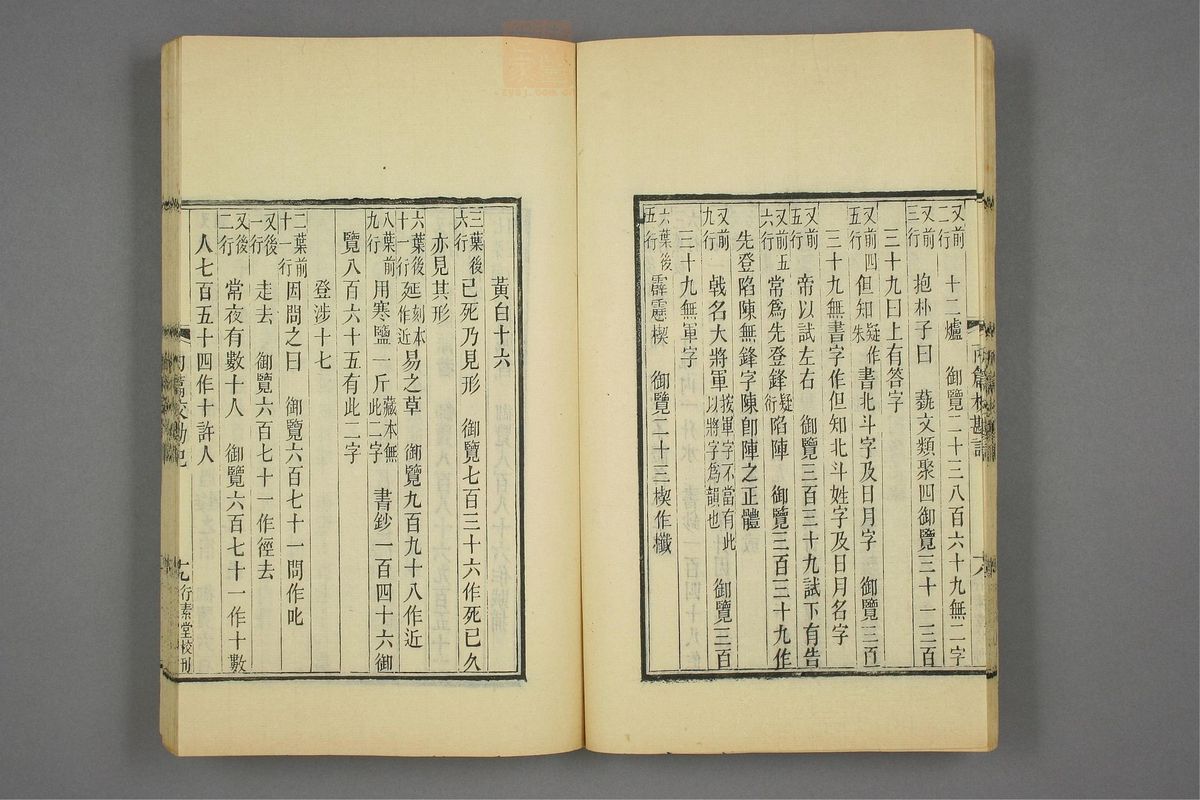 又前二行 十二爐 御覽二十三八百六十九無二字
又前三行 抱朴子曰 蓺文類聚四御覽三十一三百
三十九曰上有答字
又前四五行 但知疑作朱書北斗字及日月字 御覽三百
三十九無書字作但知北斗姓字及日月名字
又前五行 帝以試左右 御覽三百三十九試下有告
又前五六行 常爲先登鋒疑衍陷陣 御覽三百三十九作
先登陷陳無鋒字陳卽陣之正體
又前九行 戟名大將軍按軍字不當有此以將字爲韻也 御覽三百
三十九無軍字
六葉後五行 霹靂楔 御覽二十三楔作櫼
內篇校勘記
黃白十六
三葉後六行 已死乃見形 御覽七百三十六作死已久
亦見其形
六葉後十一行 延刻本作近易之草 御覽九百九十八作近
八葉前九行 用寒鹽一斤藏本無此二字 書鈔一百四十六御
覽八百六十五有此二字
登涉十七
二葉前十一行 因問之曰 御覽六百七十一問作叱
又後一行 走去 御覽六百七十一作徑去
又後二行 常夜有數十人 御覽六百七十一作十數
人七百五十四作十許人
內篇校勘記
九 行素堂校刊